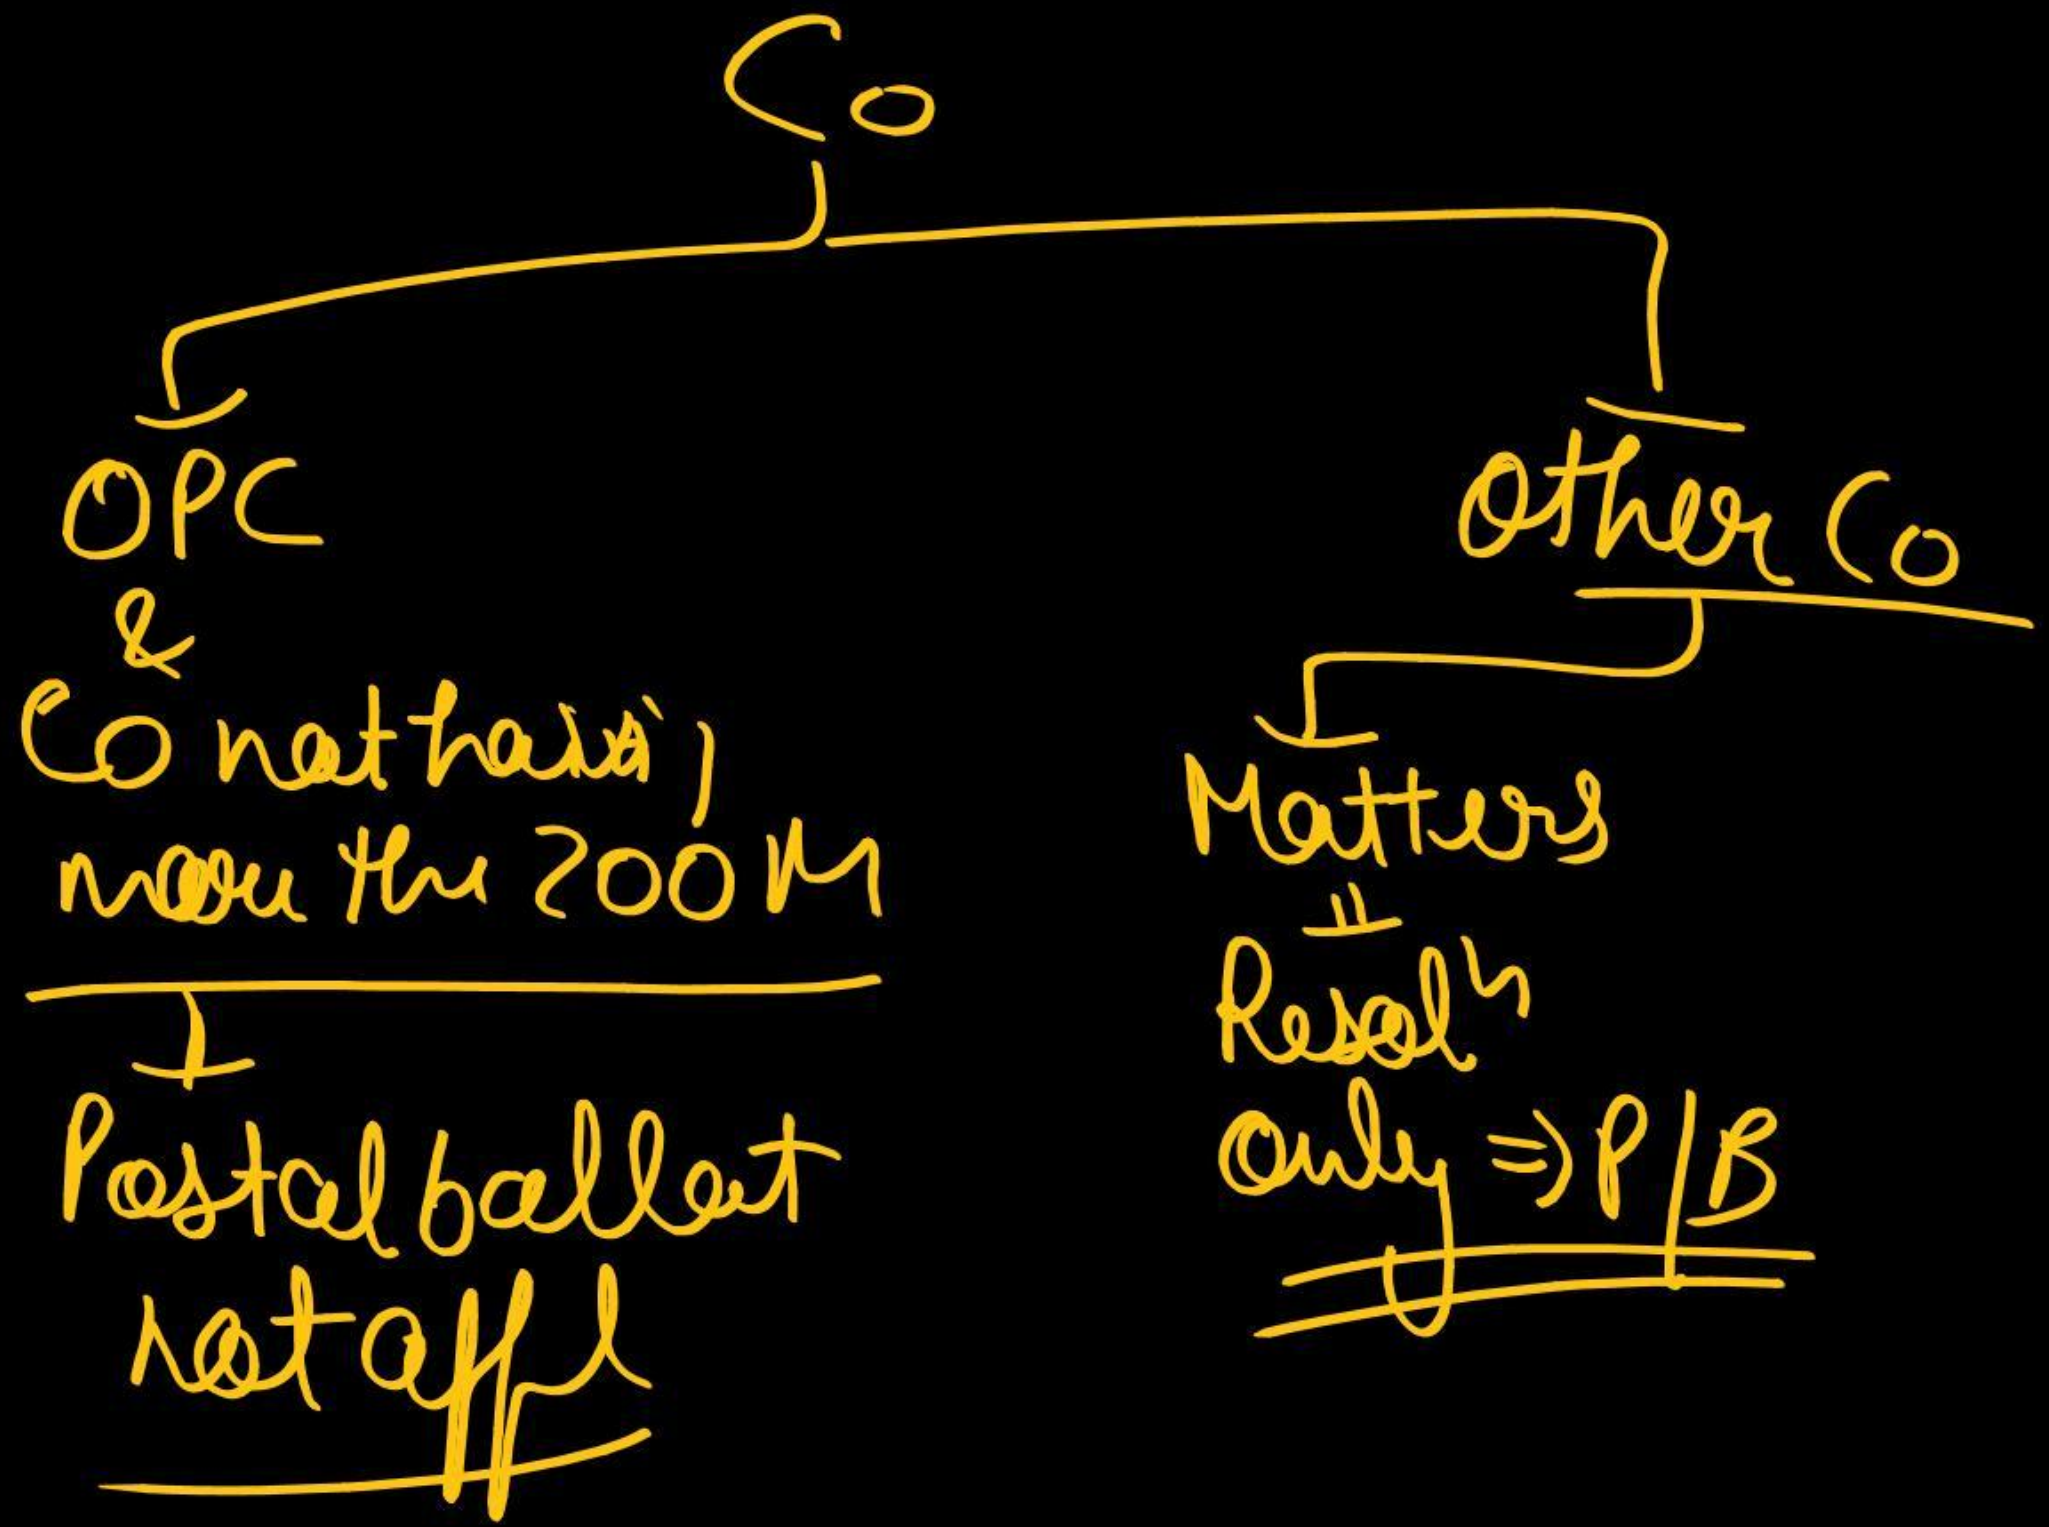 Co
OPC
&
Co not having
more the 200 M
Postal ballot
not appl
Other Co
Matters
Resolⁿ
Only => P/B